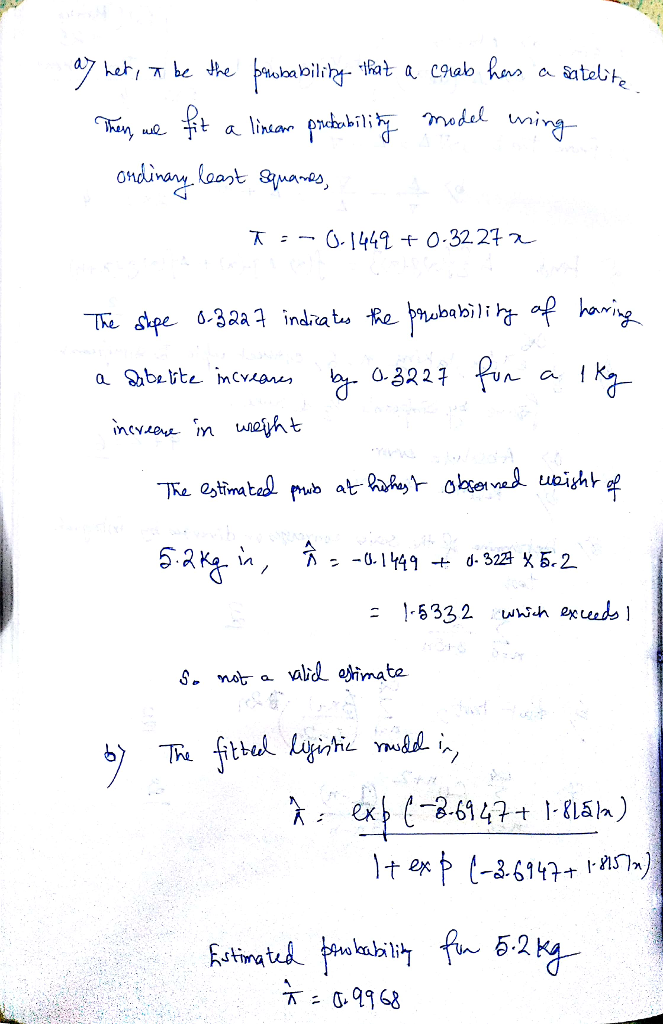 a) Let, π be the probability that a crab has a satelite.
Then, we fit a linear probability model using
ordinary least squares,
π = - 0.1449 + 0.3227 x
The slope 0.3227 indicates the probability of having
a satelite increases by 0.3227 for a 1 kg
increase in weight
The estimated prob at highest observed weight of
5.2 kg is, π̂ = -0.1449 + 0.3227 × 5.2
= 1.5332 which exceeds 1
So not a valid estimate
b) The fitted logistic model is,
π̂ = exp (-3.6947 + 1.8151x)
1 + exp (-3.6947 + 1.8151x)
Estimated probability for 5.2 kg
π̂ = 0.9968